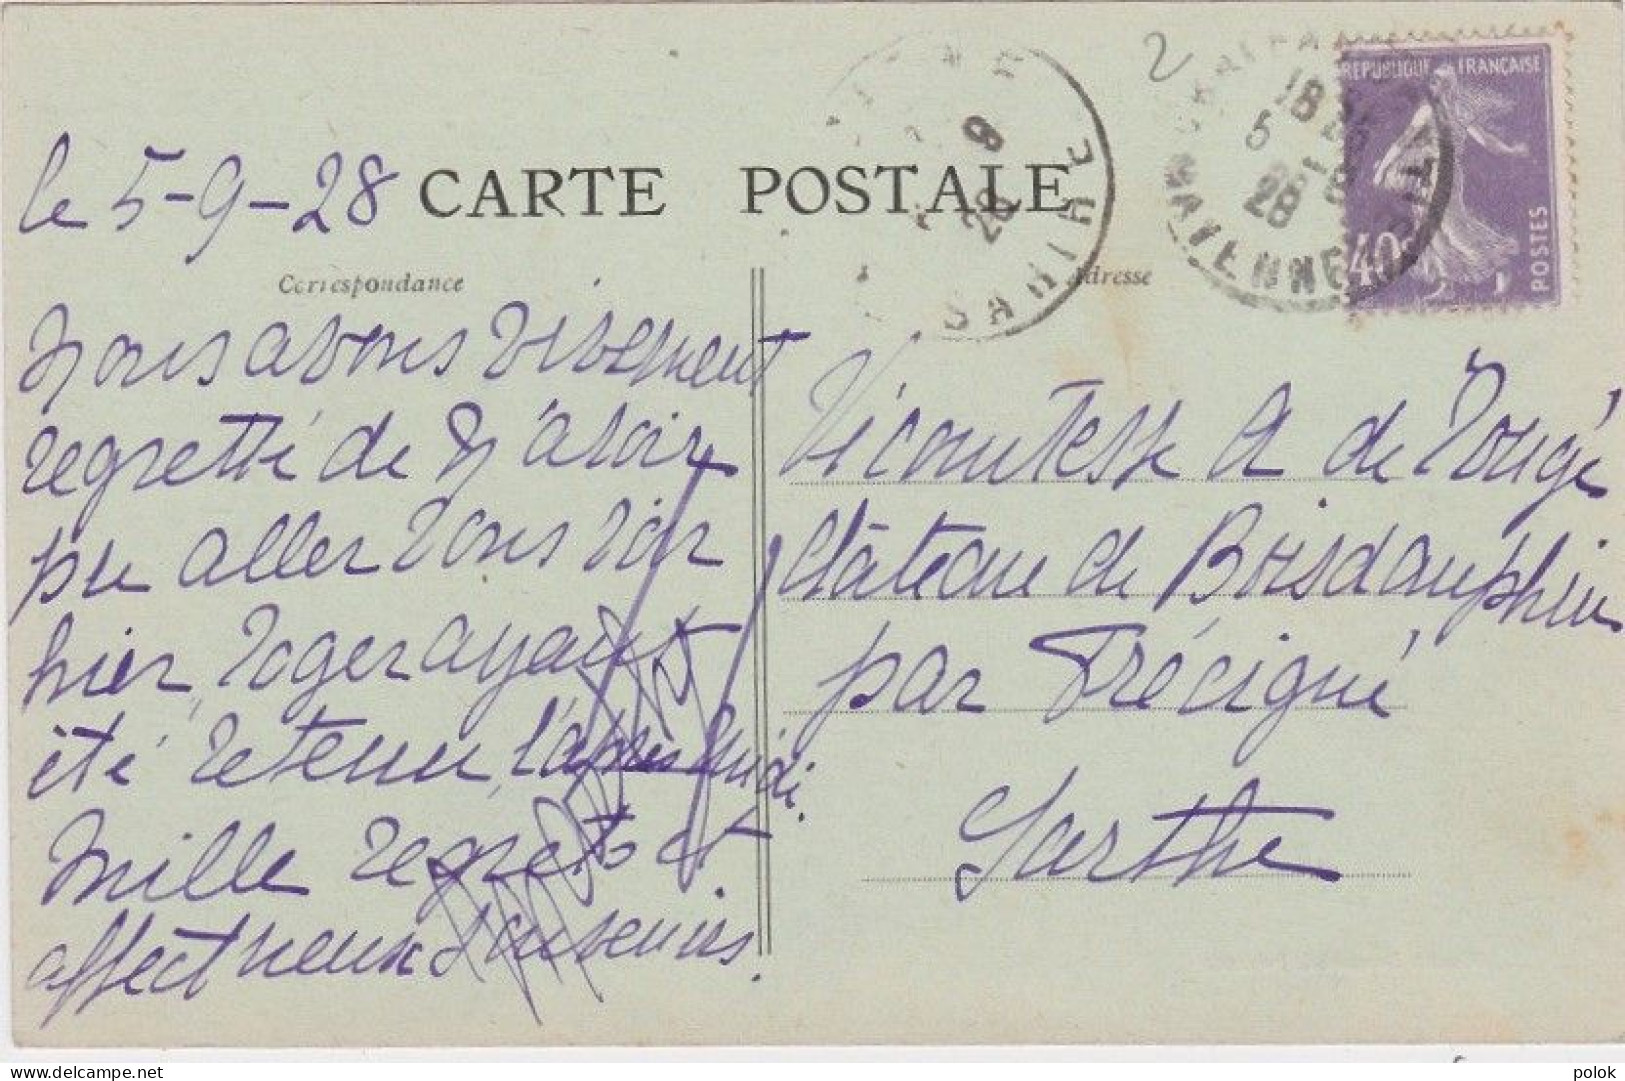 le 5-9-28
CARTE POSTALE
Correspondance
Adresse
2
REPUBLIQUE FRANÇAISE
40c
POSTES
18
5
28
MAYENNE
9
28
SARTHE
Nous avons vivement
regretté de n'avoir
pu aller vous voir
hier, Roger ayant
été retenu, l'après midi.
Mille regrets et
affectueux souvenirs.
Vicomtesse A de Rougé
Château de Boisdauphin
par Précigné
Sarthe
delcampe.net
polok